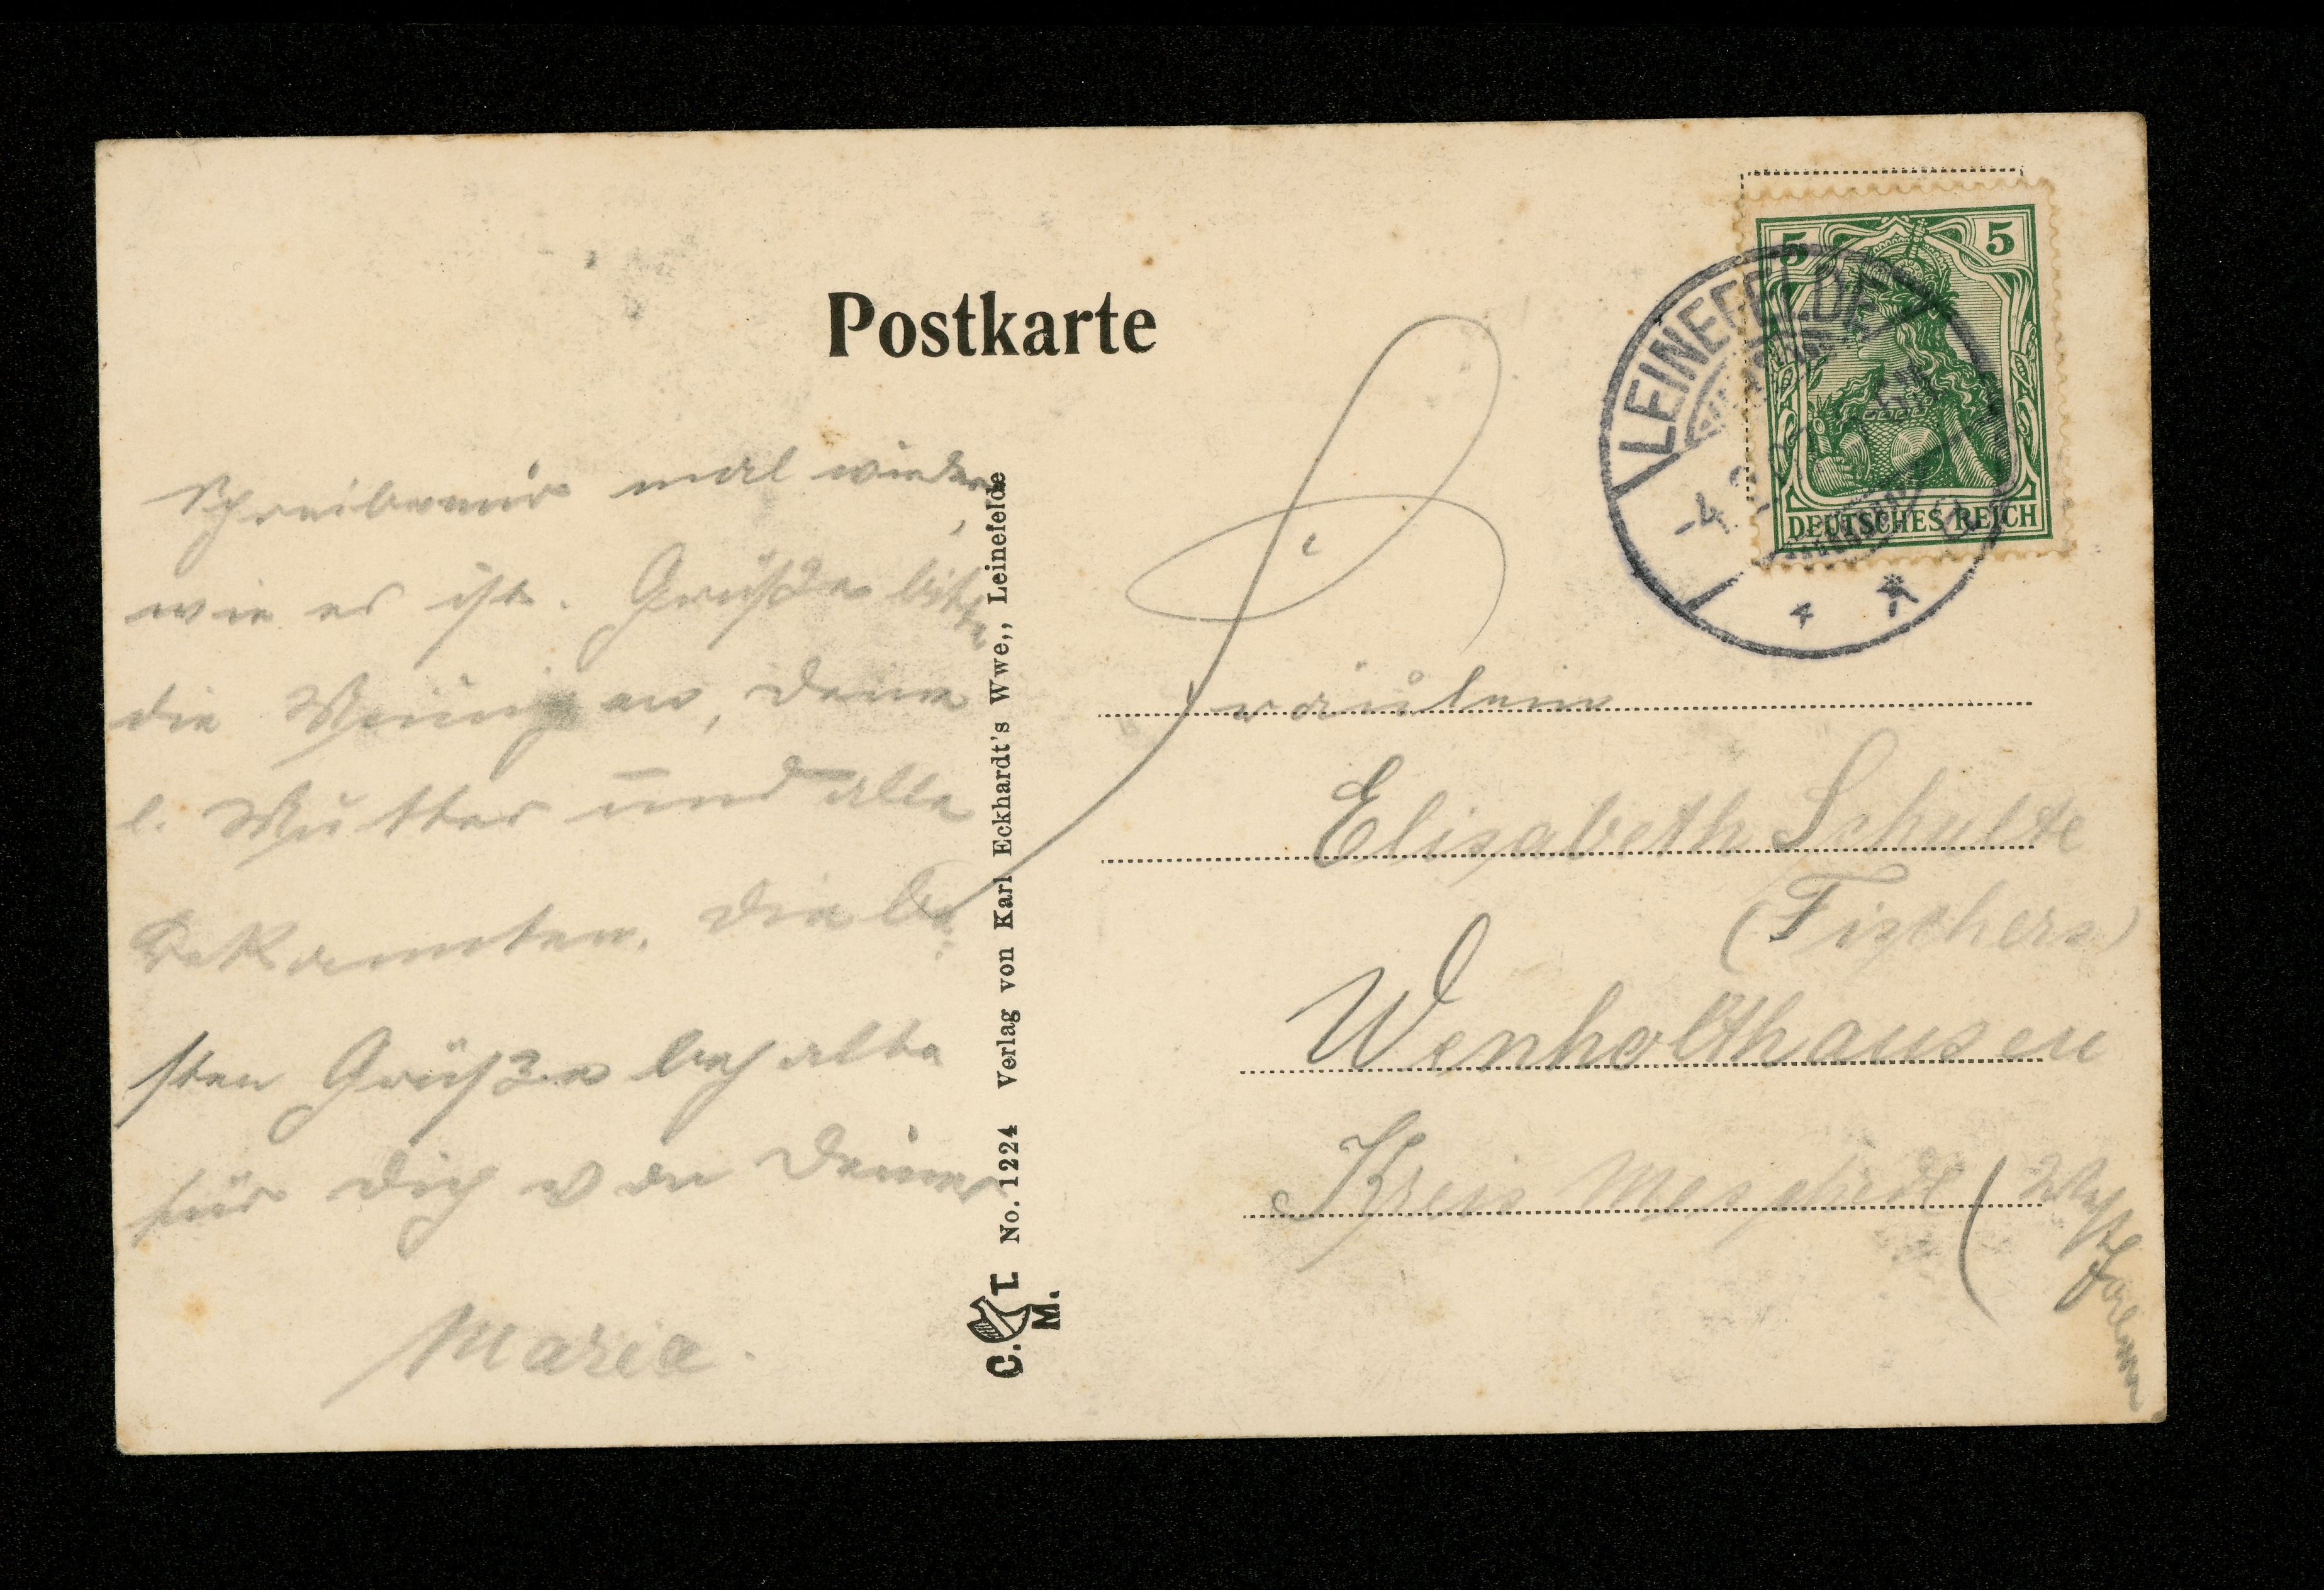 Postkarte
Schreibe mir mal wieder,
wie es ist. Grüße bitte
die Meinigen, Deine
l. Mutter und alle
Bekannten. Die be-
sten Grüße behalte
für Dich von Deiner
Maria.
No. 1224 Verlag von Karl Eckhardt's Wwe,, Leinefelde
C. T. M.
5 5
DEUTSCHES REICH
LEINEFELDE
Fräulein
Elisabeth Schulte
(Fischers)
Wenholthausen
Kreis Meschede (Westfalen